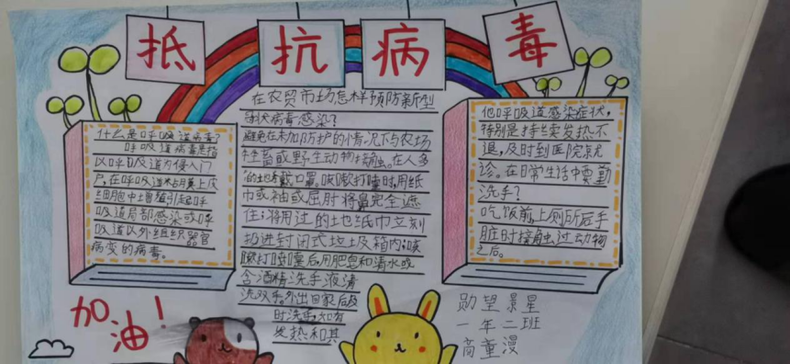 抵抗病毒
什么是呼吸道病毒?
呼吸道病毒是指
以呼吸道为侵入门
户,在呼吸道粘膜上皮
细胞中增殖引起呼
吸道局部感染或呼
吸道以外组织器官
病变的病毒。
在农贸市场怎样预防新型
冠状病毒感染?
避免在未加防护的情况下与农场
牲畜或野生动物接触。在人多
的地方戴口罩。咳嗽打喷嚏时,用纸
巾或袖或屈肘将鼻完全遮
住;将用过的地纸巾立刻
扔进封闭式垃圾箱内;咳
嗽打喷嚏后用肥皂和清水或
含酒精洗手液清
洗双手。外出回家后及
时洗手,如有
发热和其
他呼吸道感染症状,
特别是持续发热不
退,及时到医院就
诊。在日常生活中要勤
洗手?
吃饭前,上厕所后手
脏时接触过动物
之后。
加油!
勋望景星
一年二班
高童漫